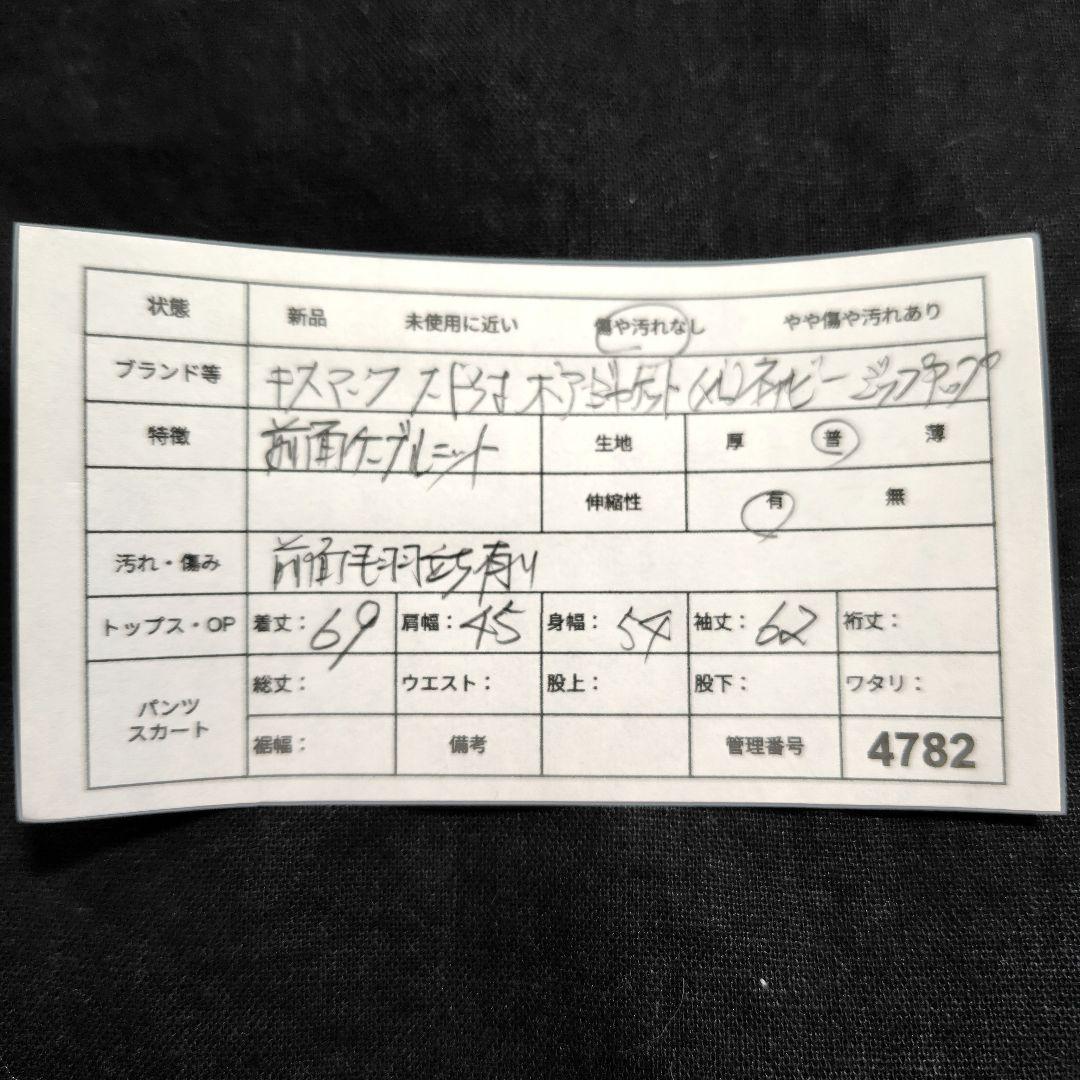 状態 新品 未使用に近い 傷や汚れなし やや傷や汚れあり
ブランド等 キスマーク フードつき ボアジャケット (L) ネイビー ジップアップ
特徴 前面ケーブルニット 生地 厚 普 薄
伸縮性 有 無
汚れ・傷み 前面毛羽立ち有り
トップス・OP 着丈：69 肩幅：45 身幅：54 袖丈：62 裄丈：
パンツ スカート 総丈： ウエスト： 股上： 股下： ワタリ：
裾幅： 備考 管理番号 4782